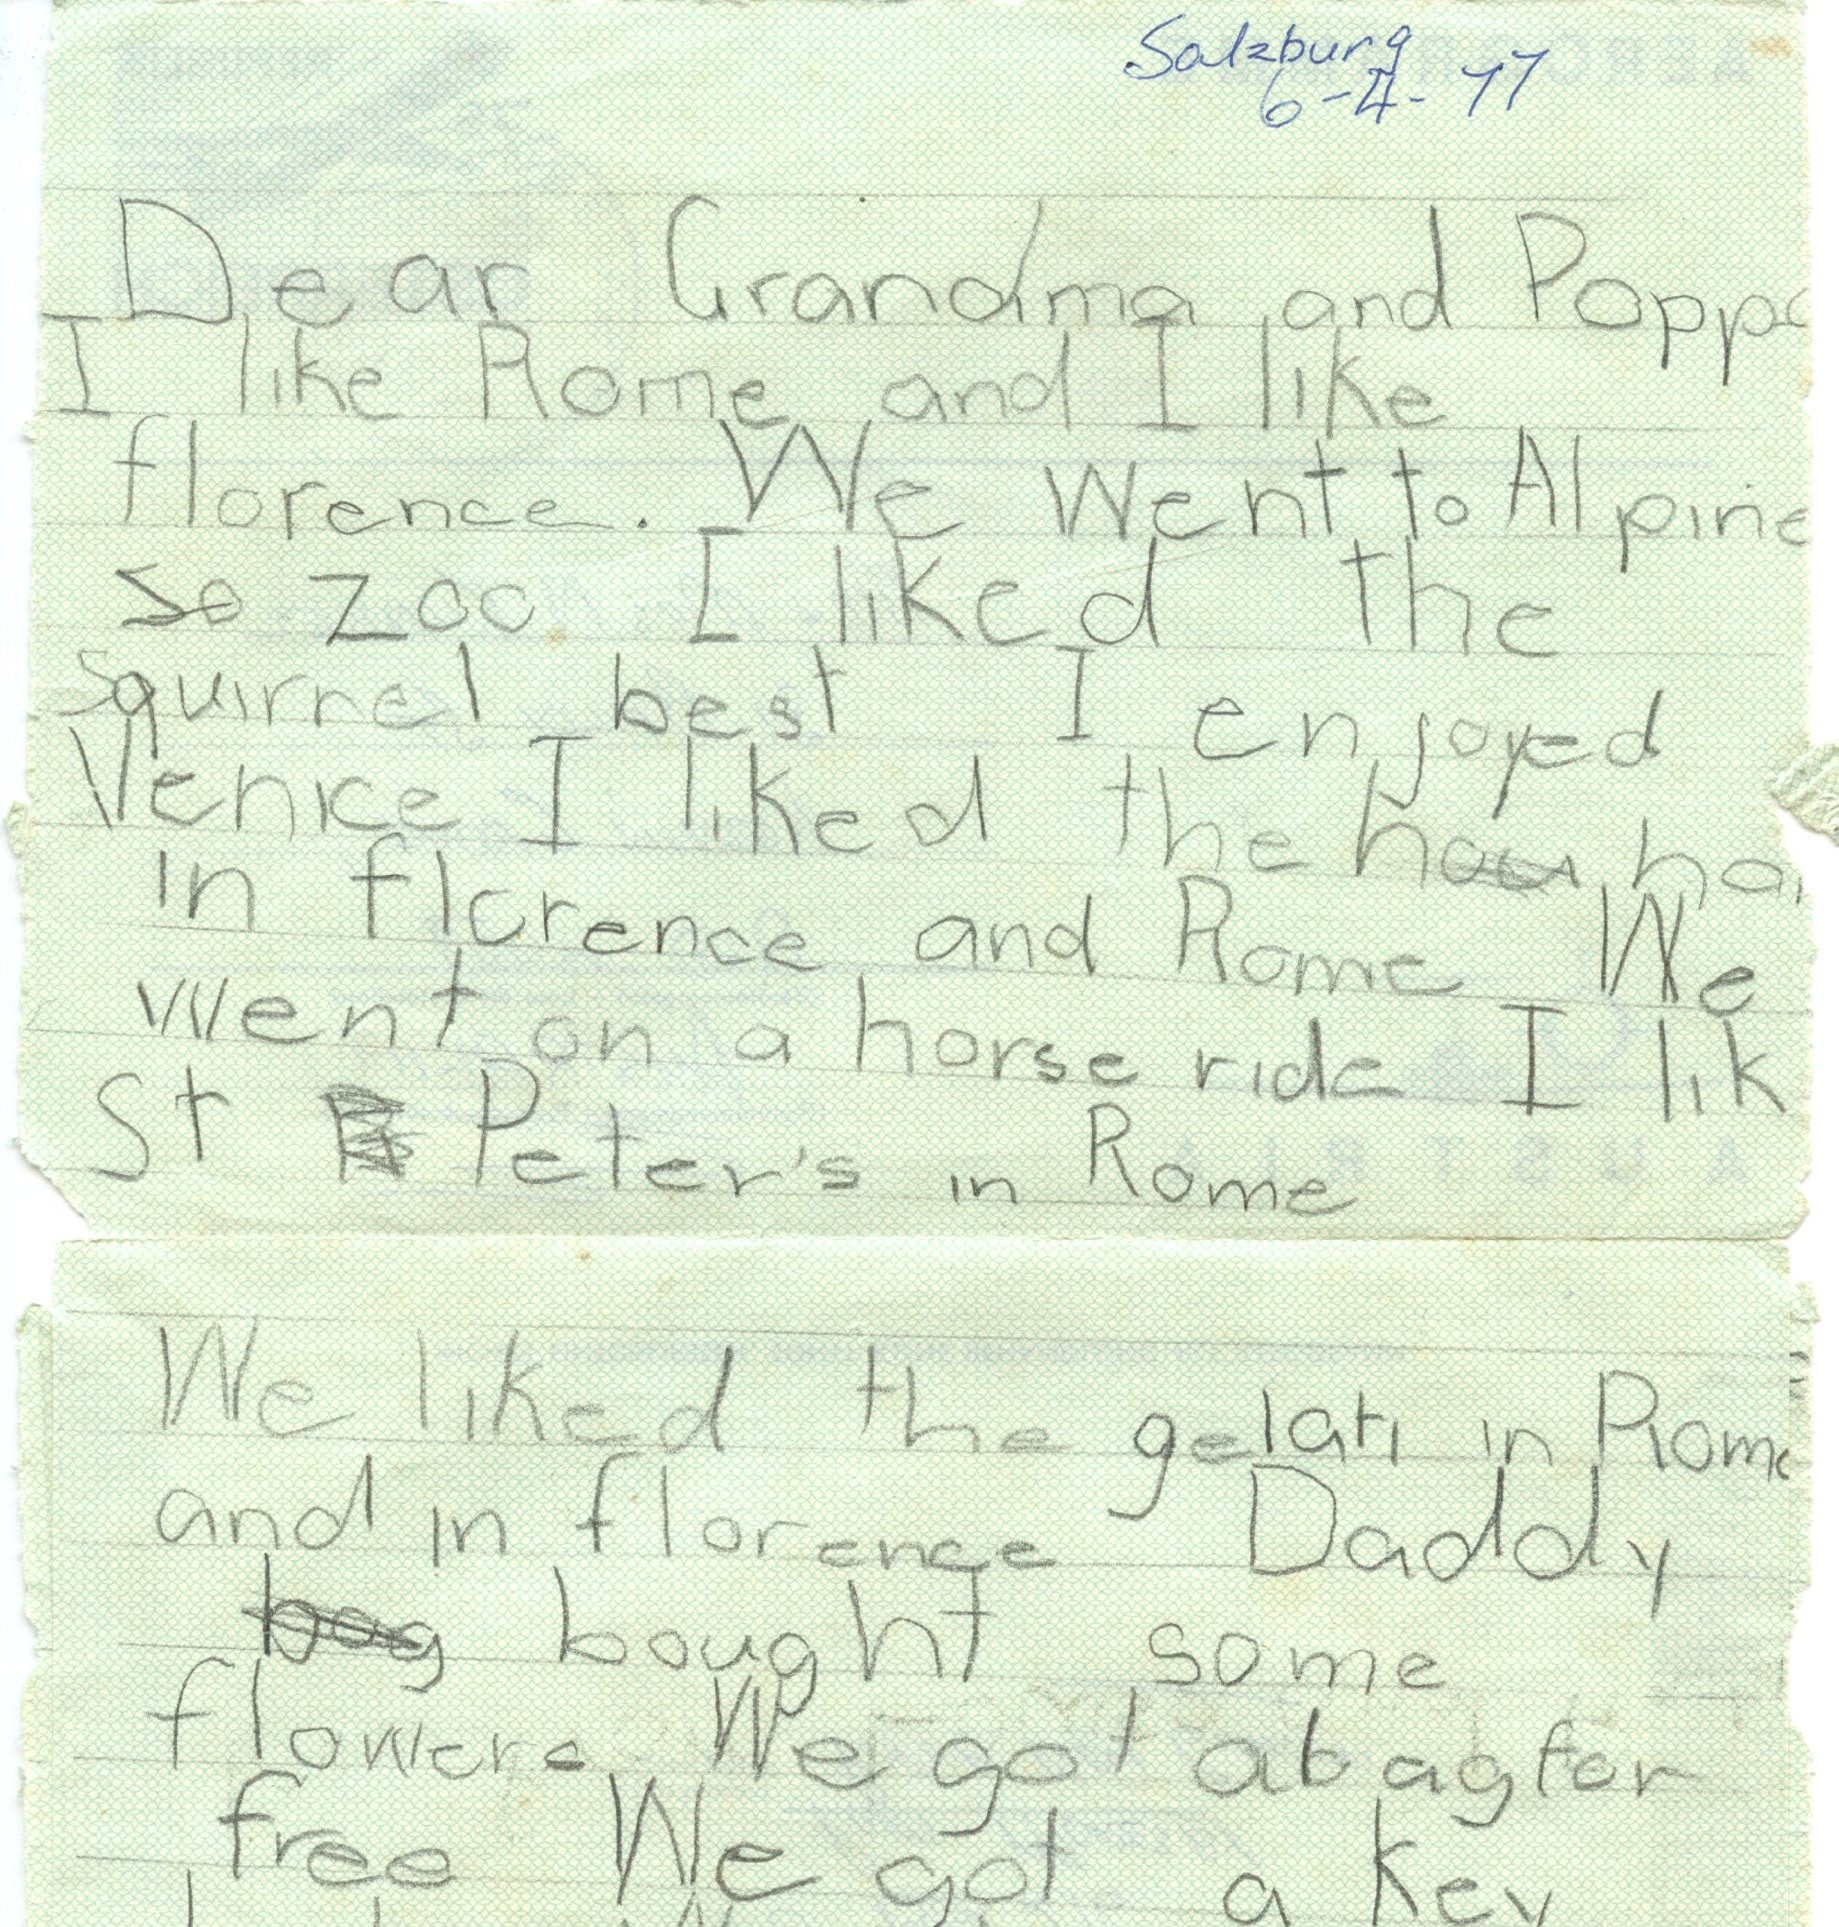 Salzburg
6-4-77
Dear Grandma and Poppa
I like Rome and I like
florence. We went to Alpine
so zoo. I liked the
squirrel best I enjoyed
Venice I liked the hou ha
in florence and Rome We
went on a horse ride I lik
St Peter's in Rome
We liked the gelati in Rome
and in florence Daddy
boug bought some
flowers We got a bag for
free We got a key